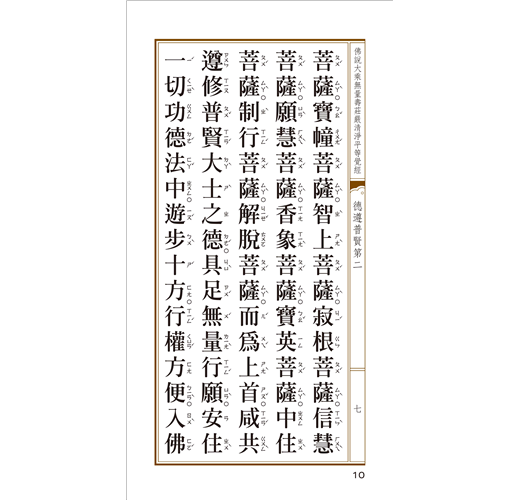 佛說大乘無量壽莊嚴清淨平等覺經
德遵普賢第二
七
菩薩寶幢菩薩智上菩薩寂根菩薩信慧
菩薩願慧菩薩香象菩薩寶英菩薩中住
菩薩制行菩薩解脫菩薩而為上首咸共
遵修普賢大士之德具足無量行願安住
一切功德法中遊步十方行權方便入佛
10